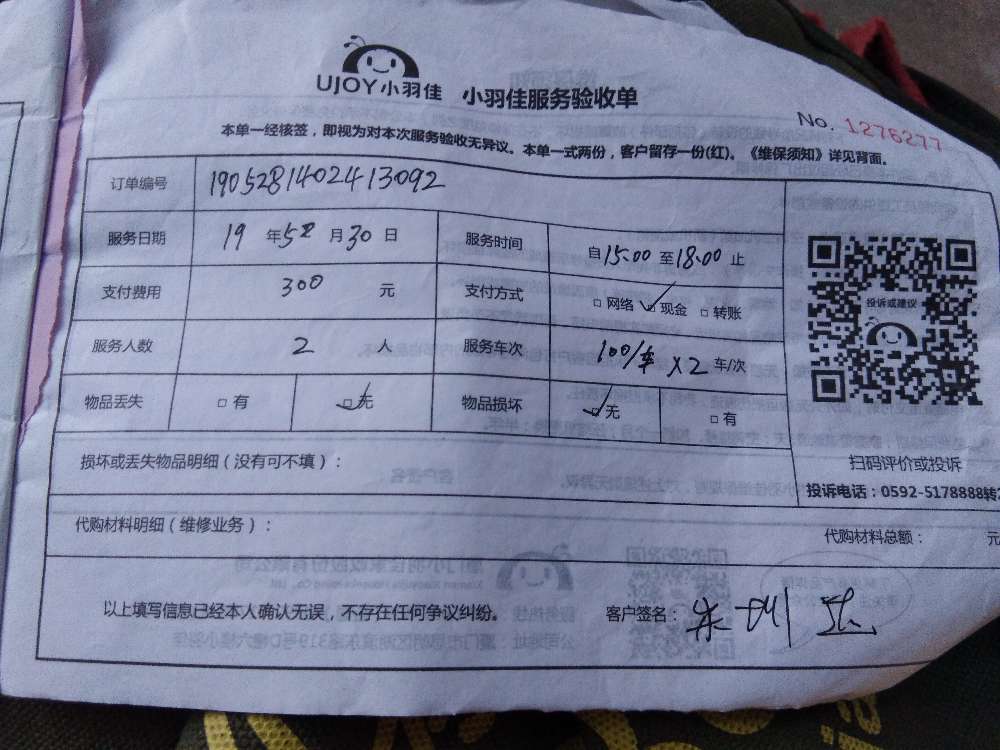 UJOY小羽佳 小羽佳服务验收单
No. 1276277
本单一经核签，即视为对本次服务验收无异议。本单一式两份，客户留存一份(红)。《维保须知》详见背面。
订单编号 1905281402413092
服务日期 19 年 5 月 30 日 服务时间 自 15:00 至 18:00 止
支付费用 300 元 支付方式 □ 网络 ☑ 现金 □ 转账
服务人数 2 人 服务车次 100/车 X2 车/次
物品丢失 □ 有 ☑ 无 物品损坏 ☑ 无 □ 有
投诉或建议
扫码评价或投诉
投诉电话：0592-5178888转
损坏或丢失物品明细（没有可不填）：
代购材料明细（维修业务）： 代购材料总额： 元
以上填写信息已经本人确认无误，不存在任何争议纠纷。 客户签名：